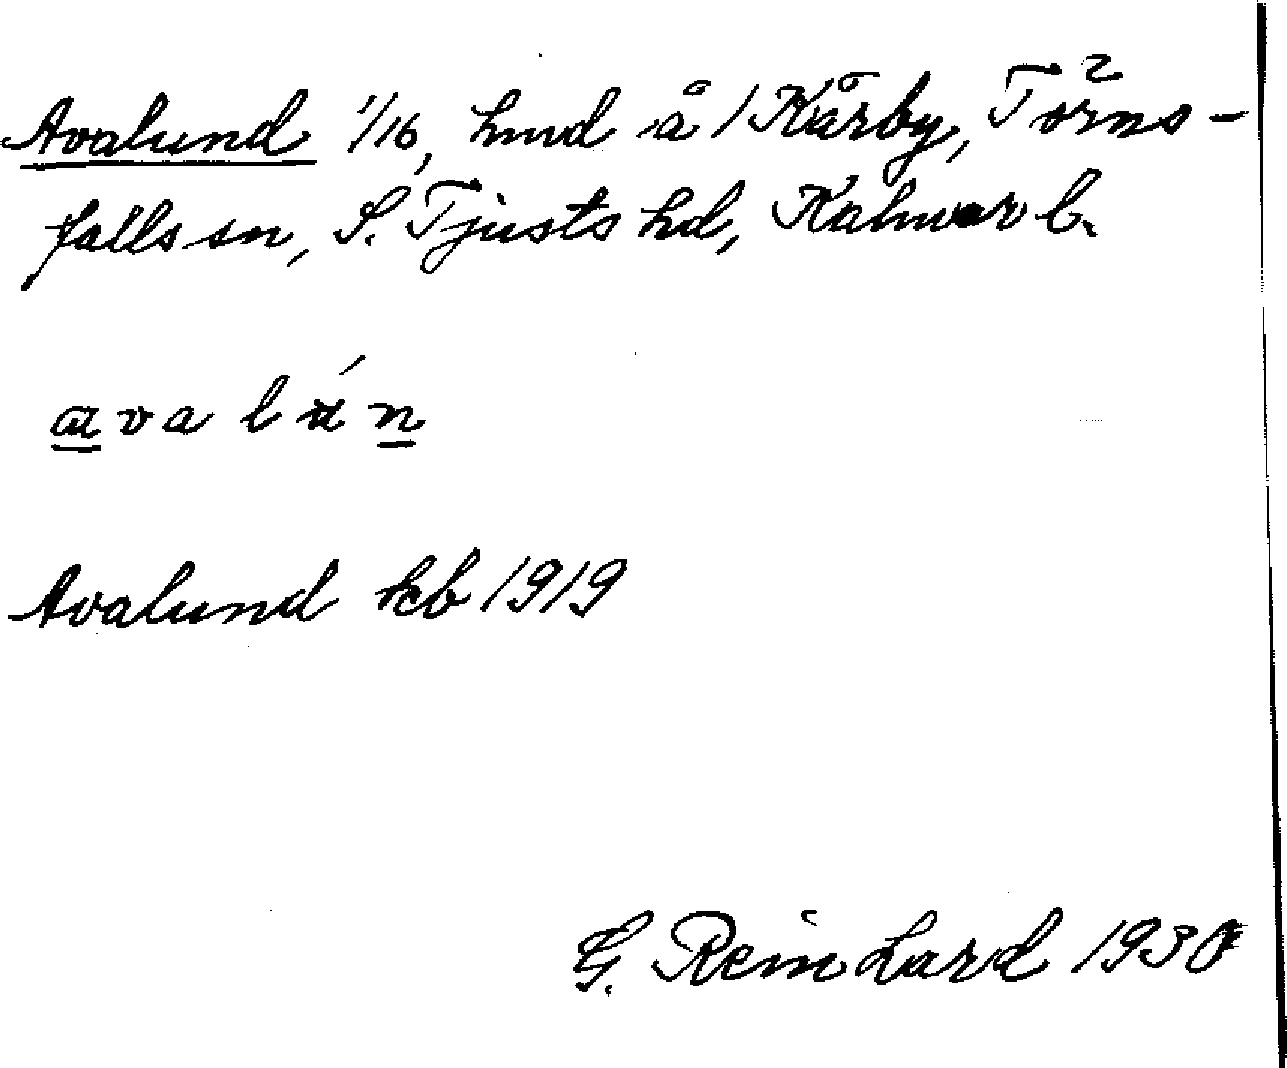 Avalund 1/16, hmd å / Kårby, Törns-
falls sn, S. Tjusts hd, Kalmar l.
a v a l ú n
Avalund kb 1919
G. Reinhard 1930